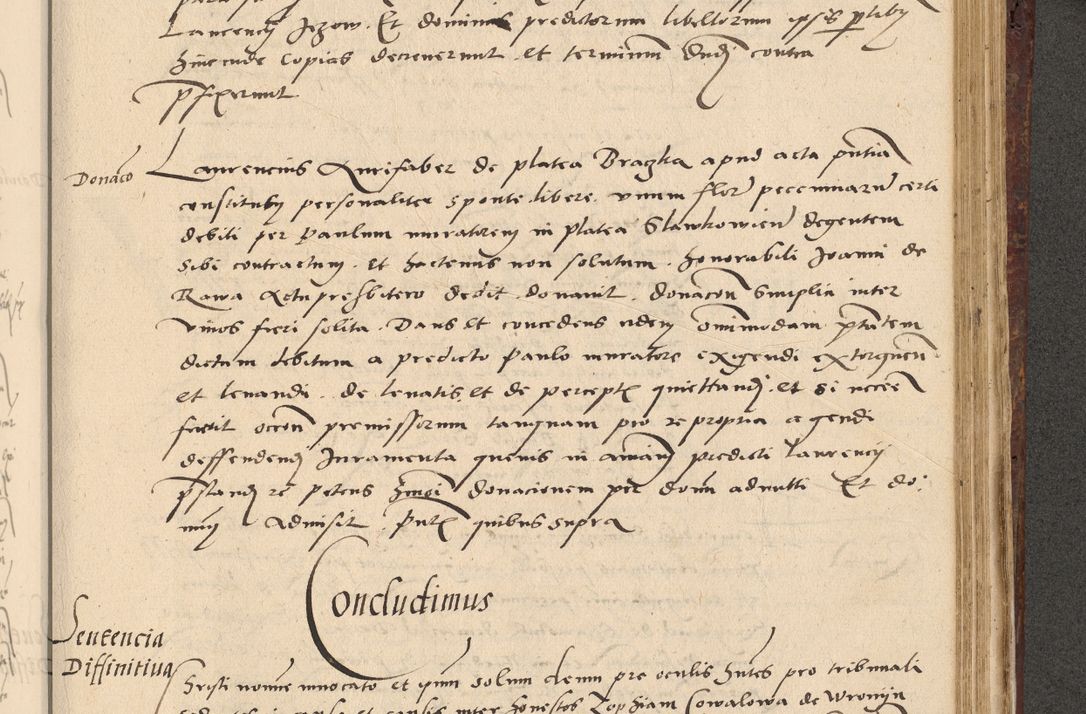 Laurencij Iizow. Et dominus predictorum libellorum ipsis partibus
hincinde copias decreverunt et terminum ducendi contra
prefixerunt
Donacio
Laurencius Aurifaber de platea Braczka apud acta pntia
constitutus personaliter sponte libere unum flor peccuniarum certi
debiti per Paulum muratorem in platea Slawkowien degentem
sibi contractum et hactenus non solutum honorabili Joanni de
Rawa Actu presbitero dedit donavit donacon simplici inter
vivos fieri solita. Dans et concedens eidem omnimodam ptatem
dictum debitum a predicto Paulo muratore exigendi extorquen
et levandi de levatis et de percept quittand et si neceesse
fuerit occon premissorum tanquam pro re propria agendi
deffendend Iuramenta quevis in animam predicti Laurencij
prestand re petens hmoi donacionem per domin admitti Et do:
minus Admisit Pntibus quibus supra
Concludimus
Sentencia
Diffinitiva
Christi nomine invocato et ipsum solum deum pre oculis hntes pro tribunali
sedentes in causa et causis inter honestos Zophiam Cowalowa de Wronyn